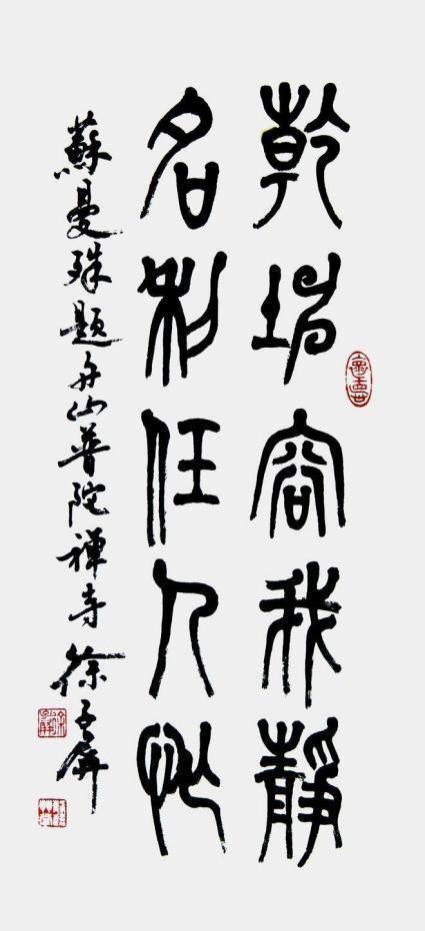 乾坤容我靜
名利任人忙
蘇曼殊題舟山普陀禪寺 徐子屏